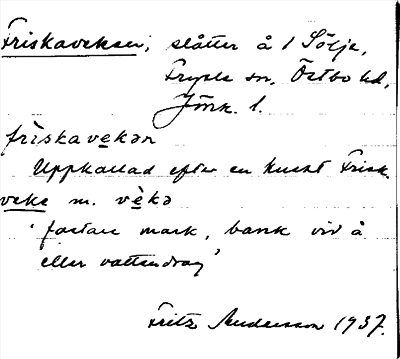 Friskaveken, slåtter å 1 Sölje,
Fryele sn, Östbo hd,
Jönk. l.
frìskavekən
Uppkallad efter en knekt Frisk.
veke m. vèkə
'fastare mark, bank vid å
eller vattendrag'
Fritz Andersson 1937.